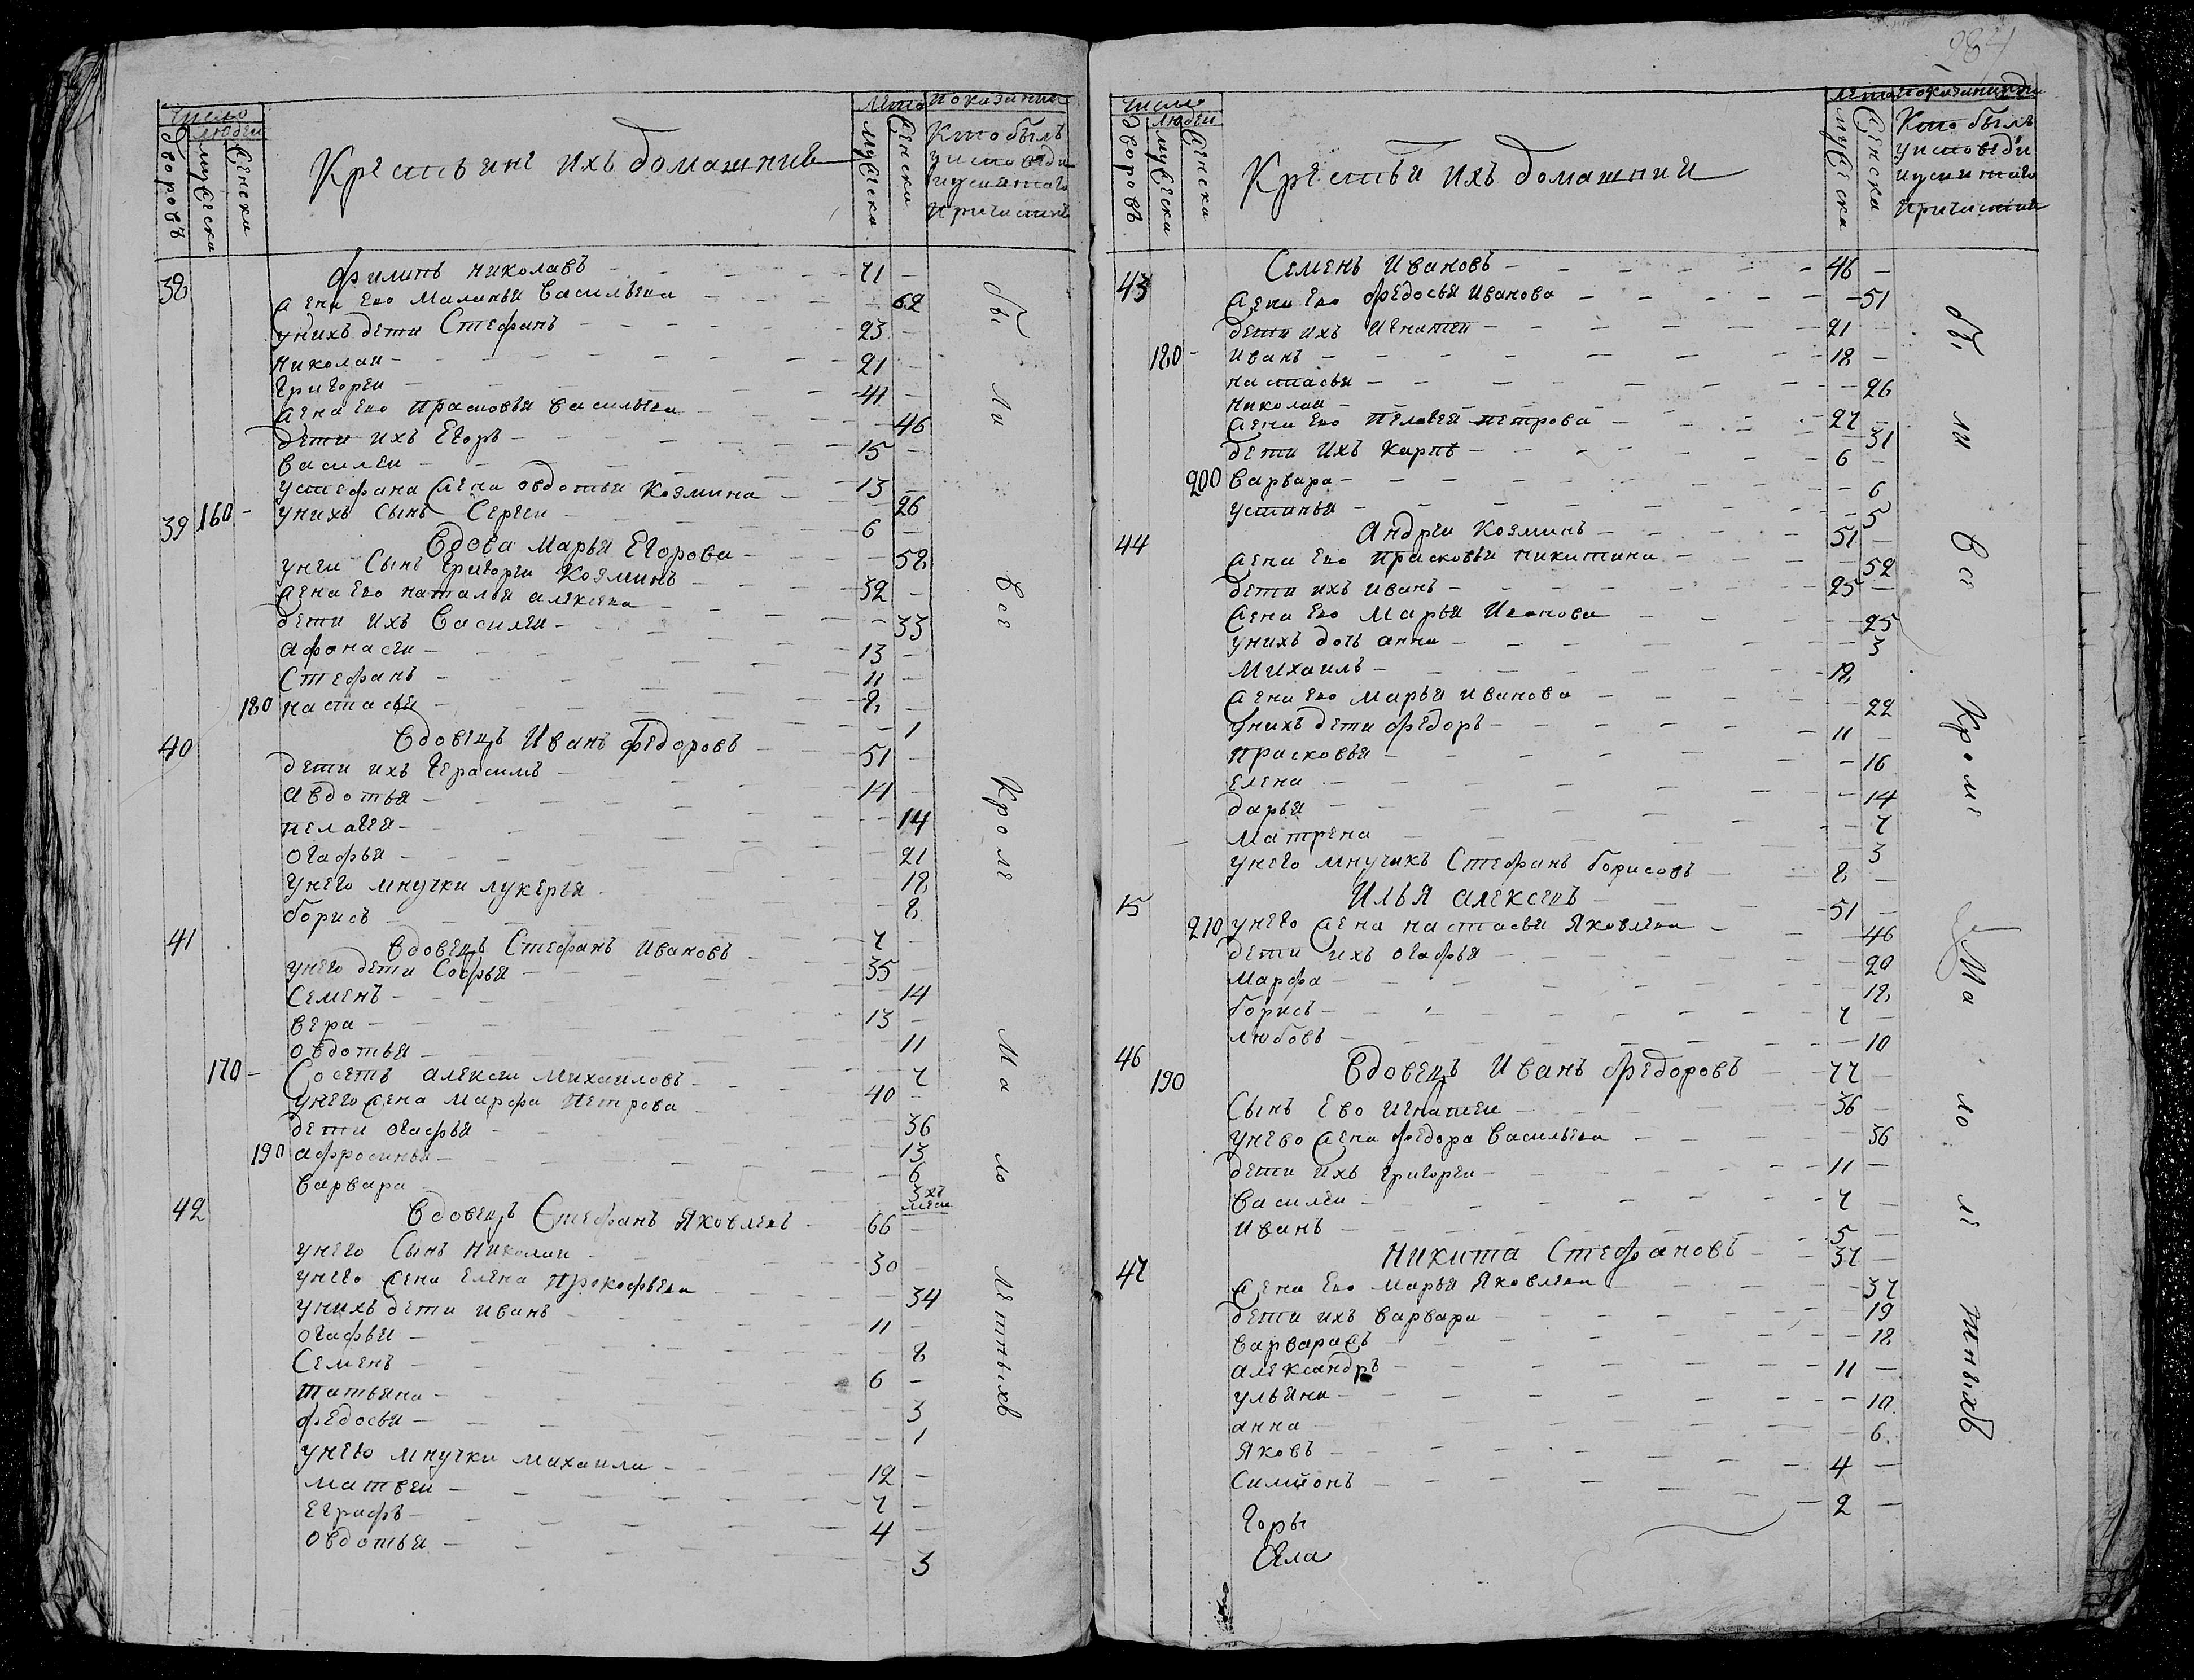 Число
людеи
дворовъ
муЖеска
Женска
Крестьяне ихъ домашние
Лета
муЖеска
Женска
показании
Кто былъ
уисповеди
иусвятаго
причастия
38 Филипъ николаевъ - 71 -
Жена Ево Маланья Васильева - 68
унихъ дети Стефанъ - 23 -
николаи - 21 -
Григореи - 41 -
Жена Ево прасковья васильева - 46
дети ихъ Егоръ - 15 -
василеи - 13 -
устефана Жена овдотья Козмина - 26
160 - унихъ Сынъ Сергеи - 6 -
39 Вдова Марья Егорова - 58
унеи Сынъ Григореи Козминъ - 32 -
Жена Ево наталья алексеева - 33
дети ихъ Василеи - 13 -
афонасеи - 11 -
Стефанъ - 8 -
180 настасья - 1
40 Вдовецъ Иванъ Федоровъ - 51 -
дети ихъ Герасимъ - 14 -
авдотья - 14
пелагея - 21
огафья - 18
унего мнучки лукерья - 8
борисъ - 7 -
41 Вдовецъ Стефанъ Ивановъ - 35 -
унего дети Софья - 14
Семенъ - 13 -
вера - 11
овдотья - 7
170 - Соседъ алексеи михаиловъ - 40 -
унего Жена Марфа петрова - 36
дети огафья - 13
190 афросинья - 6
варвара - 3хъ меся
42 Вдовецъ Стефанъ Яковлевъ - 66 -
унего Сынъ николаи - 30 -
унего Жена Елена прокофьева - 34
унихъ дети иванъ - 11 -
огафья - 8
Семенъ - 6 -
татьяна - 3
федосья - 1
унего мнучки михаила - 12 -
матвеи - 7 -
Еграфъ - 4 -
овдотья - 3
бы ли все Кроме Мало летныхъ
284
Число
людеи
дворовъ
муЖеска
Женска
Крестья ихъ домашнии
лета
муЖеска
Женска
показании
Кто былъ
уисповеди
иусвятаго
причастия
43 Семенъ Ивановъ - 46 -
Жена Ево федосья Иванова - 51
дети ихъ игнатеи - 21 -
180 - иванъ - 18 -
настасья - 26
николаи - 27 -
Жена Ево пелагея петрова - 31
дети ихъ Карпъ - 6 -
200 варвара - 6
устинья - 5
44 Андреи Козминъ - 51 -
Жена Ево прасковья никитина - 52
дети ихъ иванъ - 25 -
Жена Ево Марья Иванова - 25
унихъ дочь анна - 3
Михаилъ - 18
Жена Ево марья иванова - 22
унихъ дети федоръ - 11 -
прасковья - 16
Елена - 14
дарья - 7
матрена - 3
унего мнучикъ Стефанъ борисовъ - 8 -
15 Илья алексеевъ - 51 -
210 унего Жена настасья Яковлева - 46
дети ихъ огафья - 20
Марфа - 18
борисъ - 7 -
любовь - 10
46 190 Вдовецъ Иванъ федоровъ - 77 -
Сынъ Ево игнатеи - 36 -
унево Жена федора васильева - 36
дети ихъ григореи - 11 -
василеи - 7 -
иванъ - 5 -
47 Никита Стефановъ - 37 -
Жена Ево марья Яковлева - 37
дети ихъ варвара - 19
варвара Жъ - 18
александръ - 11 -
ульяна - 10
анна - 6
Яковъ - 4 -
Симионъ - 2 -
Горы
Села
бы ли все Кроме Мало летныхъ